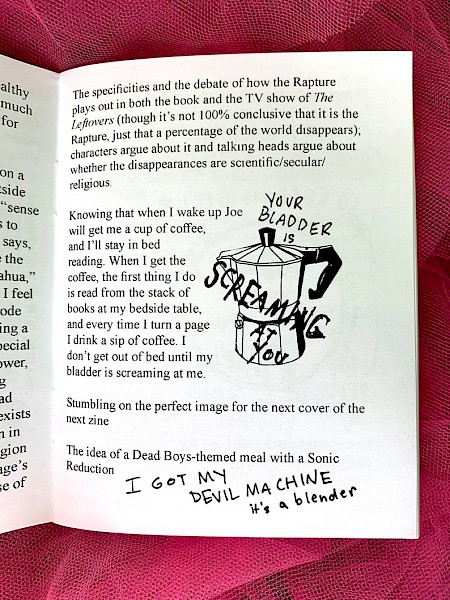 althy
much
for
on a
tside
"sense
s to
says,
e the
ahua,"
I feel
ode
ing a
pecial
ower,
g
ad
exists
n in
gion
age's
se of
The specificities and the debate of how the Rapture
plays out in both the book and the TV show of The
Leftovers (though it's not 100% conclusive that it is the
Rapture, just that a percentage of the world disappears);
characters argue about it and talking heads argue about
whether the disappearances are scientific/secular/
religious.
Knowing that when I wake up Joe
will get me a cup of coffee,
and I'll stay in bed
reading. When I get the
coffee, the first thing I do
is read from the stack of
books at my bedside table,
and every time I turn a page
I drink a sip of coffee. I
don't get out of bed until my
bladder is screaming at me.
YOUR
BLADDER
IS
SCREAMING
AT
YOU
Stumbling on the perfect image for the next cover of the
next zine
The idea of a Dead Boys-themed meal with a Sonic
Reduction
I GOT MY
DEVIL MACHINE
it's a blender